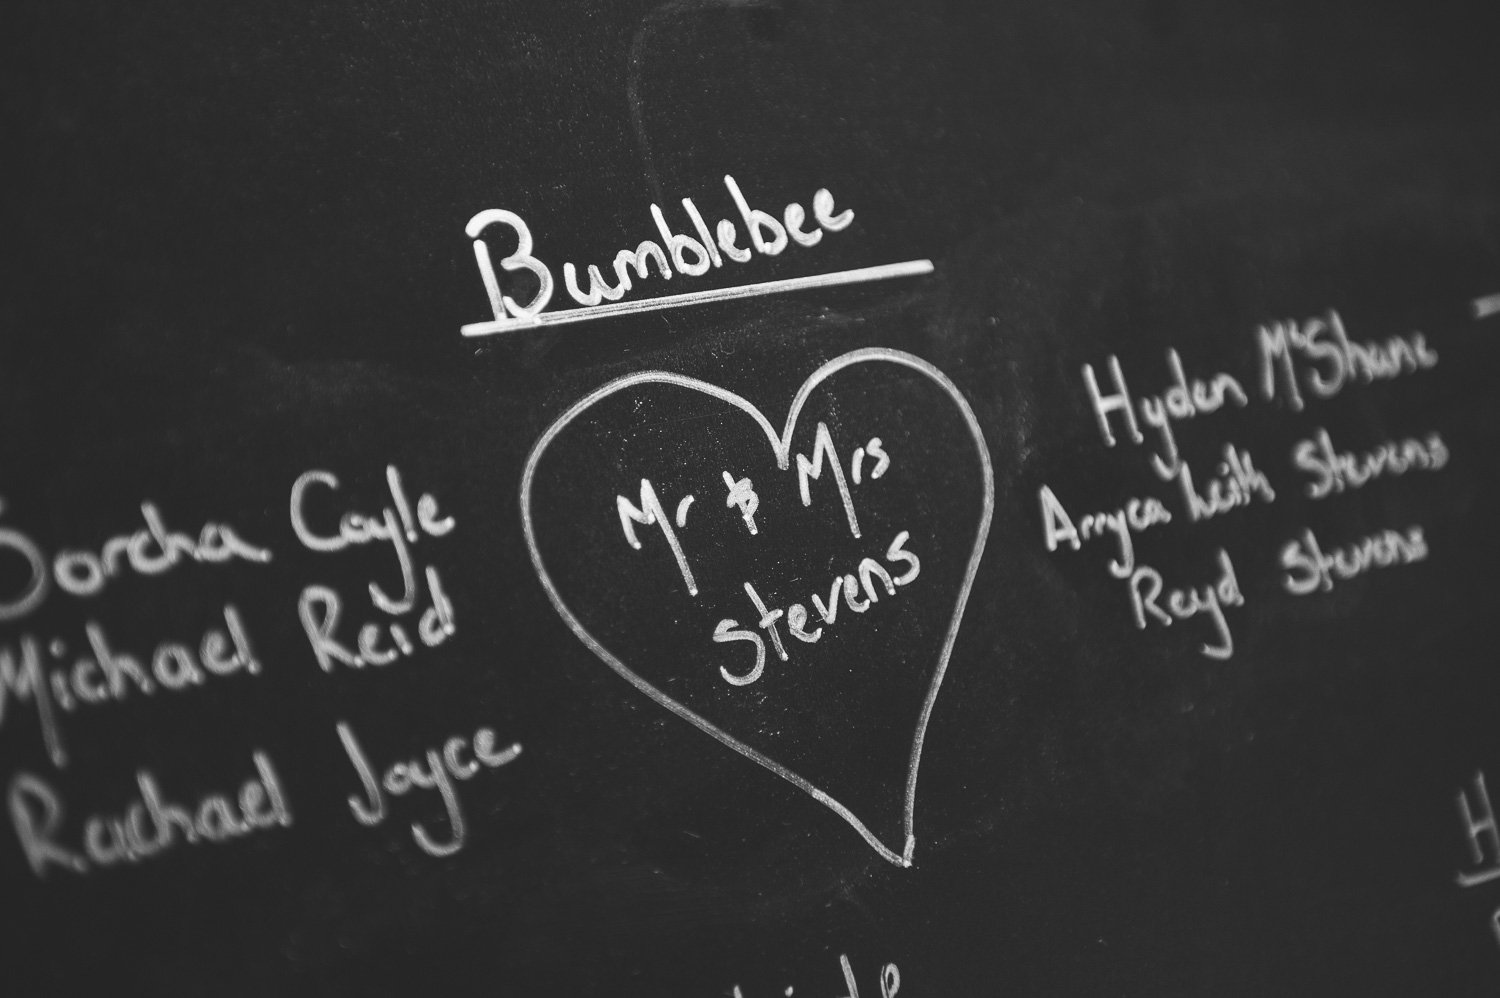 Bumblebee
Sorcha Coyle
Michael Reid
Rachael Joyce
Mr & Mrs
Stevens
Hyden McShane
Arryca Leith Stevens
Reyd Stevens
H